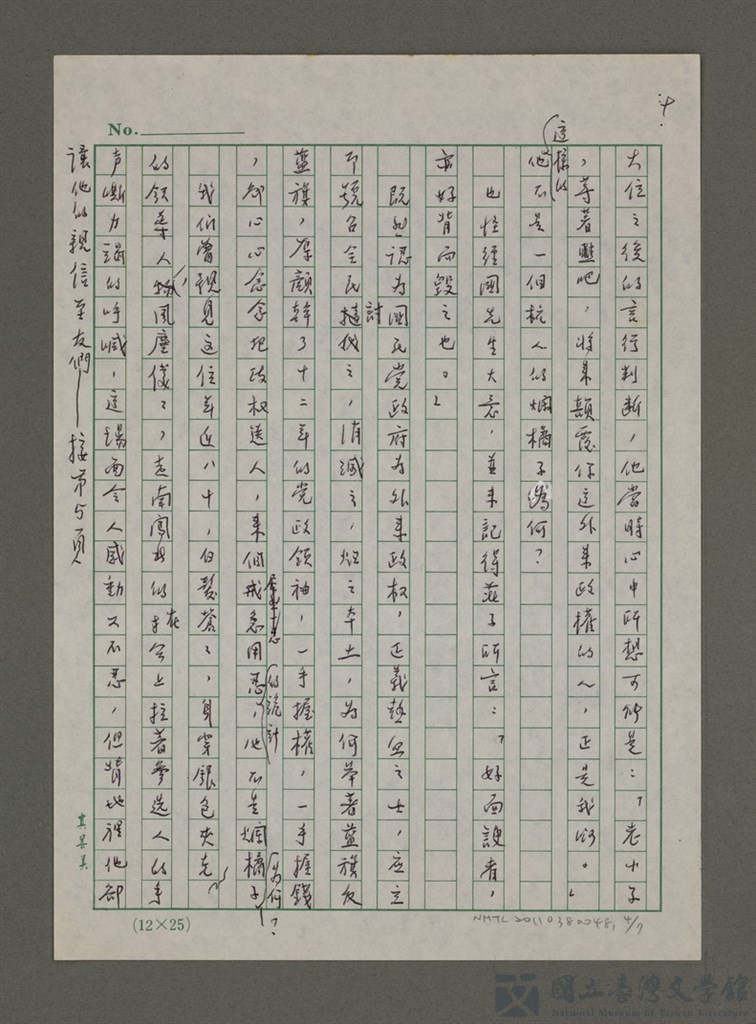 4.
No.
大位之後的言行判斷，他當時心中所想可能是：「老小子
，等著瞧吧，將來顛覆你這外來政權的人，正是我呀。」
（這樣的
他不是一個杭人的爛橘子為何？
也怪經國先生大意，並未記得莊子所言：「好面諛者，
亦好背而毀之也。」
既然認為國民党政府為外來政權，正義熱血之士，应立
即號召全民討
撻伐之，消滅之，烟之本土，為何举著藍旗反
藍旗，厚顏幹了十二年的党政領袖，一手握權，一手握錢
，卻心心念念把政权送人，来個戒急用忍的詭計，他不是爛橘子為何？
我們曾親見這位年近八十，白髮蒼蒼，身穿銀色夾克
的領導人物，風塵僕僕，走南闖北的在
台上拉著參选人的手
声嘶力竭的呼喊，這場面令人感動又不忍，但背地裡他卻
讓他的親信至友們——接第5頁
(12×25)
NMTL20110380048, 4/7
國立臺灣文學館
National Museum of Taiwan Literature